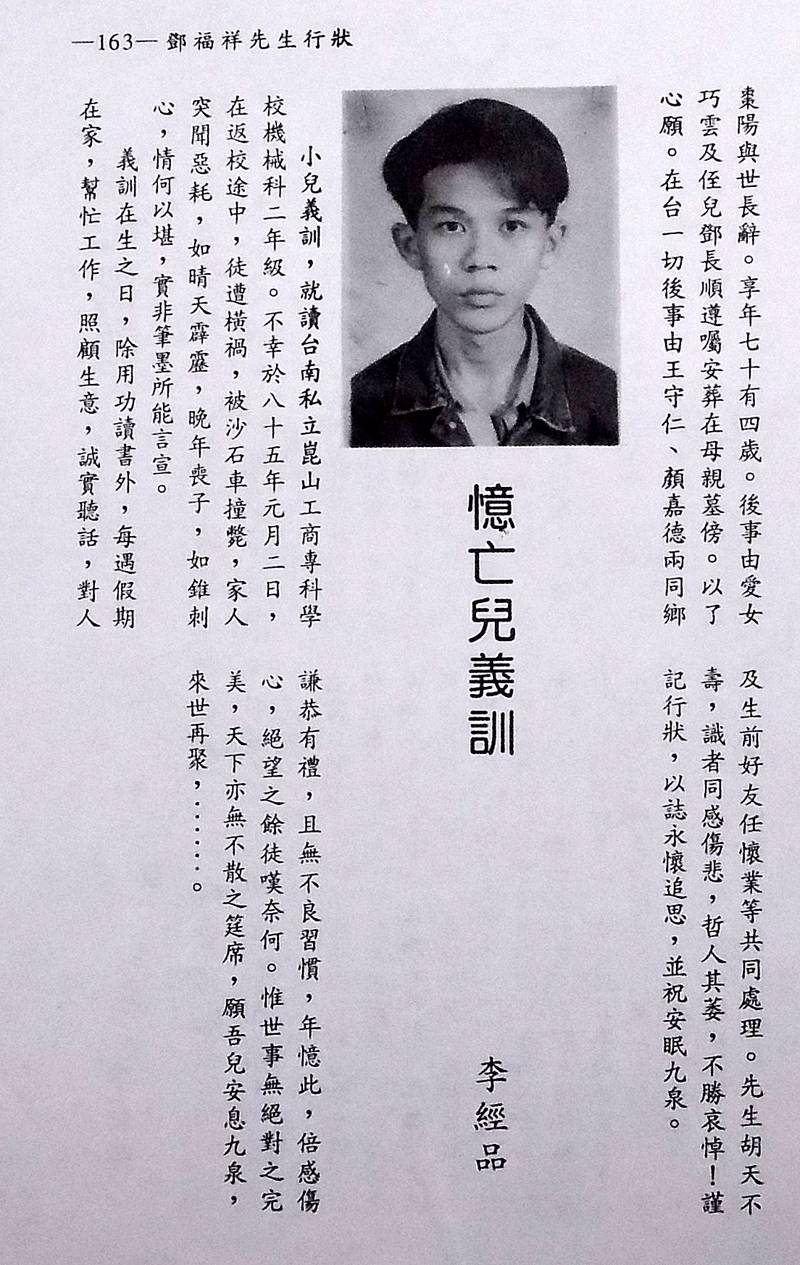 —163— 鄧福祥先生行狀
棗陽與世長辭。享年七十有四歲。後事由愛女
巧雲及侄兒鄧長順遵囑安葬在母親墓傍。以了
心願。在台一切後事由王守仁、顏嘉德兩同鄉
及生前好友任懷業等共同處理。先生胡天不
壽，識者同感傷悲，哲人其萎，不勝哀悼！謹
記行狀，以誌永懷追思，並祝安眠九泉。
憶亡兒義訓
李經品
小兒義訓，就讀台南私立崑山工商專科學
校機械科二年級。不幸於八十五年元月二日，
在返校途中，徒遭橫禍，被沙石車撞斃，家人
突聞惡耗，如晴天霹靂，晚年喪子，如錐刺
心，情何以堪，實非筆墨所能言宣。
義訓在生之日，除用功讀書外，每遇假期
在家，幫忙工作，照顧生意，誠實聽話，對人
謙恭有禮，且無不良習慣，年憶此，倍感傷
心，絕望之餘徒嘆奈何。惟世事無絕對之完
美，天下亦無不散之筳席，願吾兒安息九泉，
來世再聚，.......。